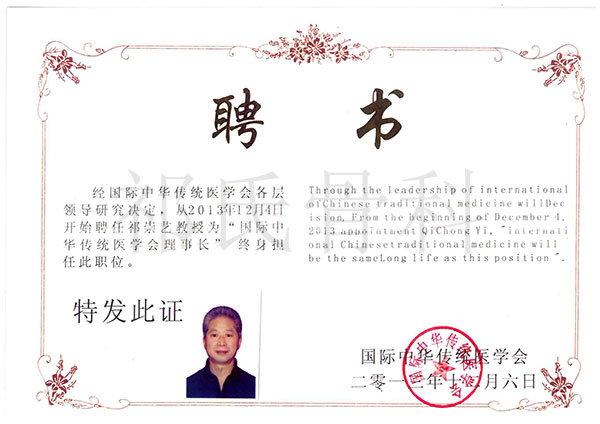 聘书
经国际中华传统医学会各层
领导研究决定，从2013年12月4日
开始聘任祁崇艺教授为“国际中
华传统医学会理事长”终身担
任此职位。
Through the leadership of international
ofChinese traditional medicine willDec
ision. From the beginning of December 4,
2013 appointment QiChong Yi, "internati
onal Chinesetraditional medicine will
be the sameLong life as this position ".
特发此证
国际中华传统医学会
二零一三年十二月六日
国际中华传统医学会
祁氏骨科